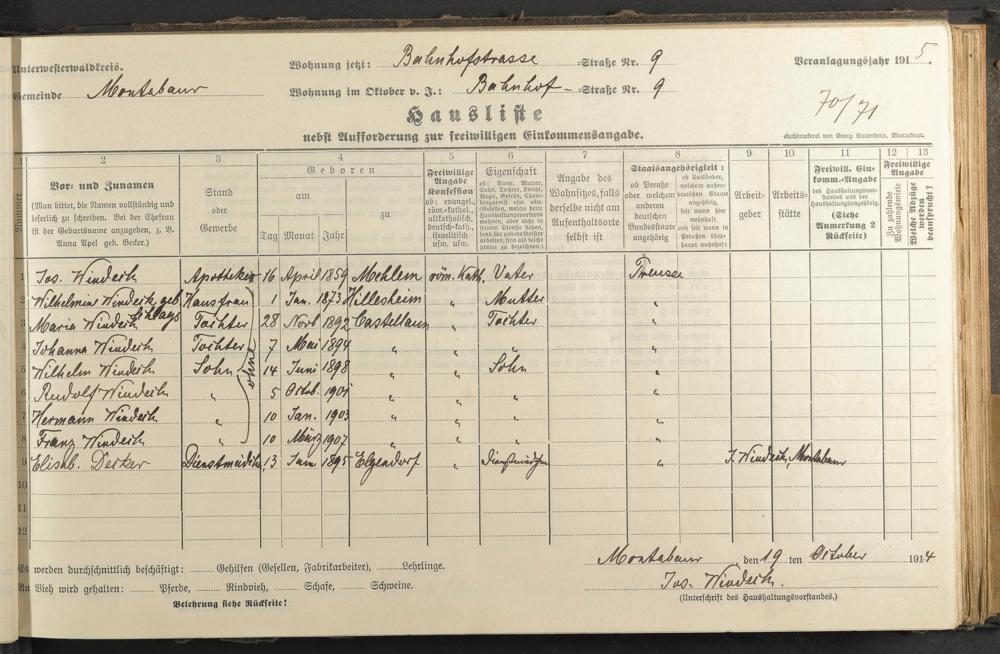 Unterwesterwaldkreis.
Wohnung jetzt: Bahnhofstrasse =Straße Nr. 9
Veranlagungsjahr 1915.
Gemeinde Montabaur
Wohnung im Oktober v. J.: Bahnhof- =Straße Nr. 9
70/71
Hausliste
nebst Aufforderung zur freiwilligen Einkommensangabe.
Buchdruckerei von Georg Sauerborn, Montabaur.
1 2 3 4 5 6 7 8 9 10 11 12 13
Nummer
Vor- und Zunamen
(Man bittet, die Namen vollständig und
leserlich zu schreiben. Bei der Ehefrau
ist der Geburtsname anzugeben, z. B.
Anna Apel geb. Becker.)
Stand
oder
Gewerbe
Geboren
am
zu
Tag Monat Jahr
Freiwillige
Angabe
Konfession
ob: evangel.,
röm.-kathol.,
altkatholisch,
deutsch-kath.,
israelitisch
usw. usw.
Eigenschaft
ob: Vater, Mutter,
Sohn, Tochter, Knecht,
Magd, Geselle, Chambregarnist
Angabe des
Wohnsitzes, falls
derselbe nicht am
Aufenthaltsorte
selbst ist
Staatsangehörigkeit:
ob Preuße
oder welchem
anderen
deutschen
Bundesstaate
angehörig
ob Ausländer,
welchem außerdeutschen
Staat
angehörig,
seit wann hier
wohnhaft
und seit wann in
Preußen überhaupt
wohnhaft?
Arbeitgeber
Arbeitsstätte
Freiwill. Einkomm.-Angabe
des Haushaltungsvorstandes
und der
Haushaltungsangehörigen.
(Siehe
Anmerkung 2
Rückseite)
Freiwillige
Angabe
Zu zahlende
Wohnungsmiete
Welche Abzüge
werden
beansprucht?
1 Jos. Windeck Apotheker 16 April 1859 Mehlem röm. Kath. Vater Preusse
2 Wilhelmin Windeck geb. Schlags Hausfrau 1 Jan. 1873 Hillesheim " Mutter "
3 Maria Windeck Tochter 28 Novb 1892 Castellaun " Tochter "
4 Johanna Windeck Tochter 7 Mai 1894 " " " "
5 Wilhelm Windeck Sohn 14 Juni 1898 " " Sohn "
6 Rudolf Windeck " 5 Octob. 1901 " " " "
7 Hermann Windeck " 10 Jan. 1903 " " " "
8 Franz Windeck " 10 März 1907 " " " "
ohne
9 Elisab. Decker Dienstmädch 13 1895 Elgendorf " Dienstmädchen " J. Windeck, Montabaur
10
11
12
Es werden durchschnittlich beschäftigt: Gehilfen (Gesellen, Fabrikarbeiter), Lehrlinge.
An Vieh wird gehalten: Pferde, Rindvieh, Schafe, Schweine.
Belehrung siehe Rückseite!
Montabaur den 19 ten October 1914
Jos. Windeck.
(Unterschrift des Haushaltungsvorstandes.)